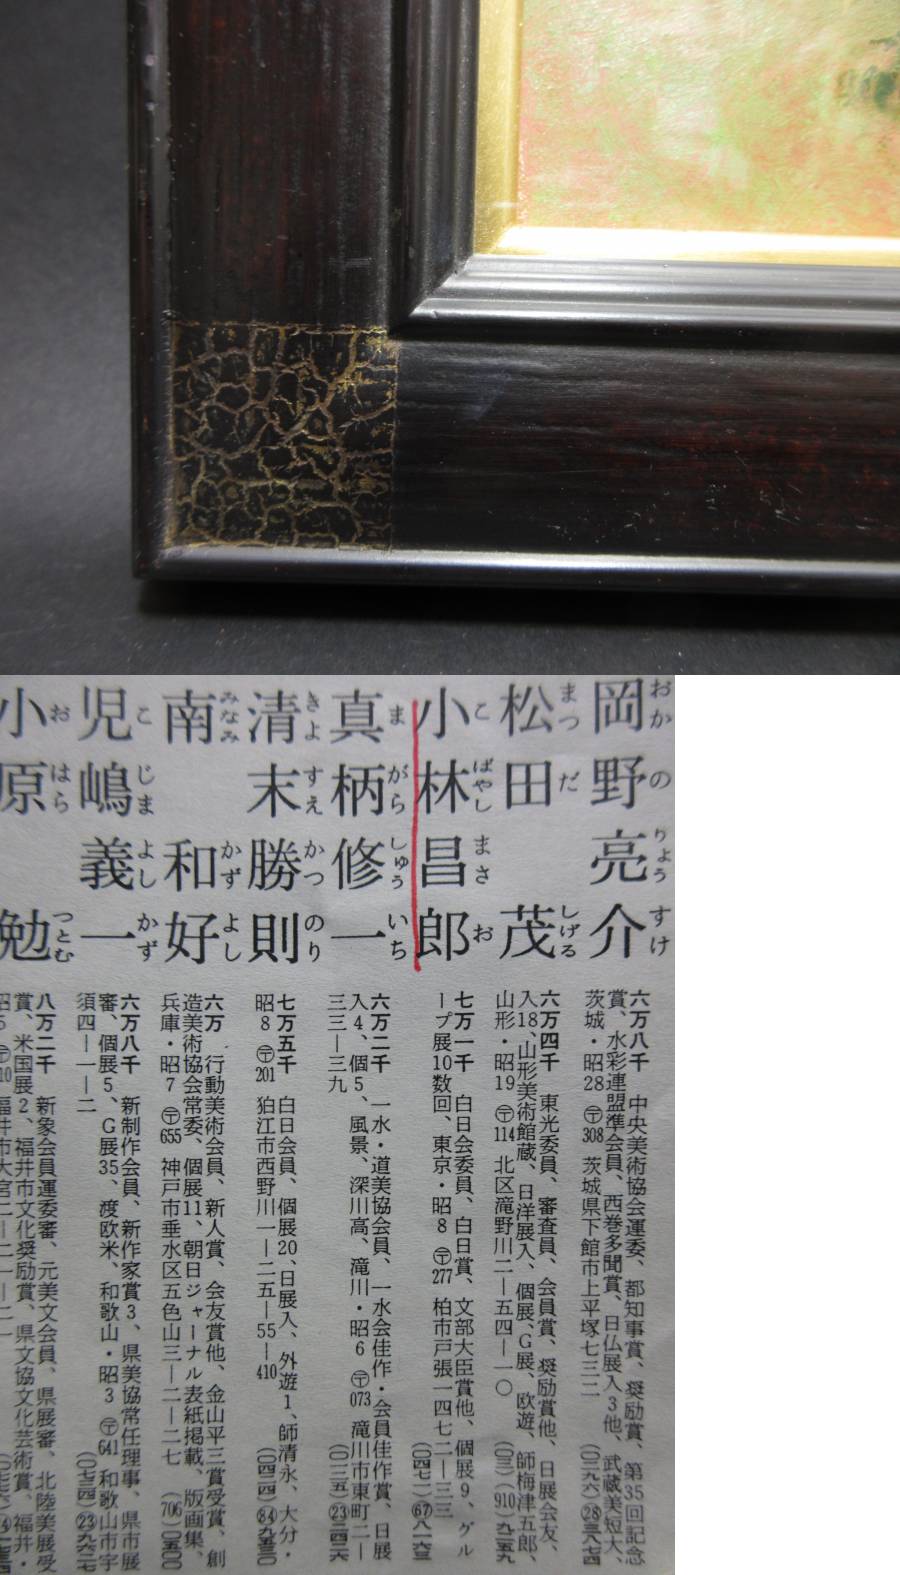 岡野亮介
おかのりょうすけ
六万八千 中央美術協会運委、都知事賞、奨励賞、第35回記念
賞、水彩連盟準会員、西巻多聞賞、日仏展入3他、武蔵美短大、
茨城・昭28 〒308 茨城県下館市上平塚七三二
松田茂
まつだしげる
六万四千 東光委員、審査員、会員賞、奨励賞他、日展会友、
入18、山形美術館蔵、日洋展入、個展、G展、欧遊、師梅津五郎、
山形・昭19 〒114 北区滝野川二ー五四ー一〇 (〇三)(910)九二五九
小林昌郎
こばやしまさお
七万一千 白日会委員、白日賞、文部大臣賞他、個展9、グル
ープ展10数回、東京・昭8 〒277 柏市戸張一四七二ー三三
(〇四七一)(67)八一六三
真柄修一
まがらしゅういち
六万二千 一水・道美協会員、一水会佳作・会員佳作賞、日展
入4、個5、風景、深川高、滝川・昭6 〒073 滝川市東町二ー
三三ー三九
清末勝則
きよすえかつのり
七万五千 白日会員、個展20、日展入、外遊1、師清永、大分・
昭8 〒201 狛江市西野川一ー二五ー55ー410
南和好
みなみかずよし
六万 行動美術会員、新人賞、会友賞他、金山平三賞受賞、創
造美術協会常委、個展11、朝日ジャーナル表紙掲載、版画集、
兵庫・昭7 〒655 神戸市垂水区五色山三ー二ー二七
児嶋義一
こじまよしかず
六万八千 新制作会員、新作家賞3、県美協常任理事、県市展
審、個展5、G展35、渡欧米、和歌山・昭3 〒641 和歌山市宇
須四ー一ー二
小原勉
おはらつとむ
八万二千 新象会員運委審、元美文会員、県展審、北陸美展受
賞、米国展2、福井市文化奨励賞、県文協文化芸術賞、福井・